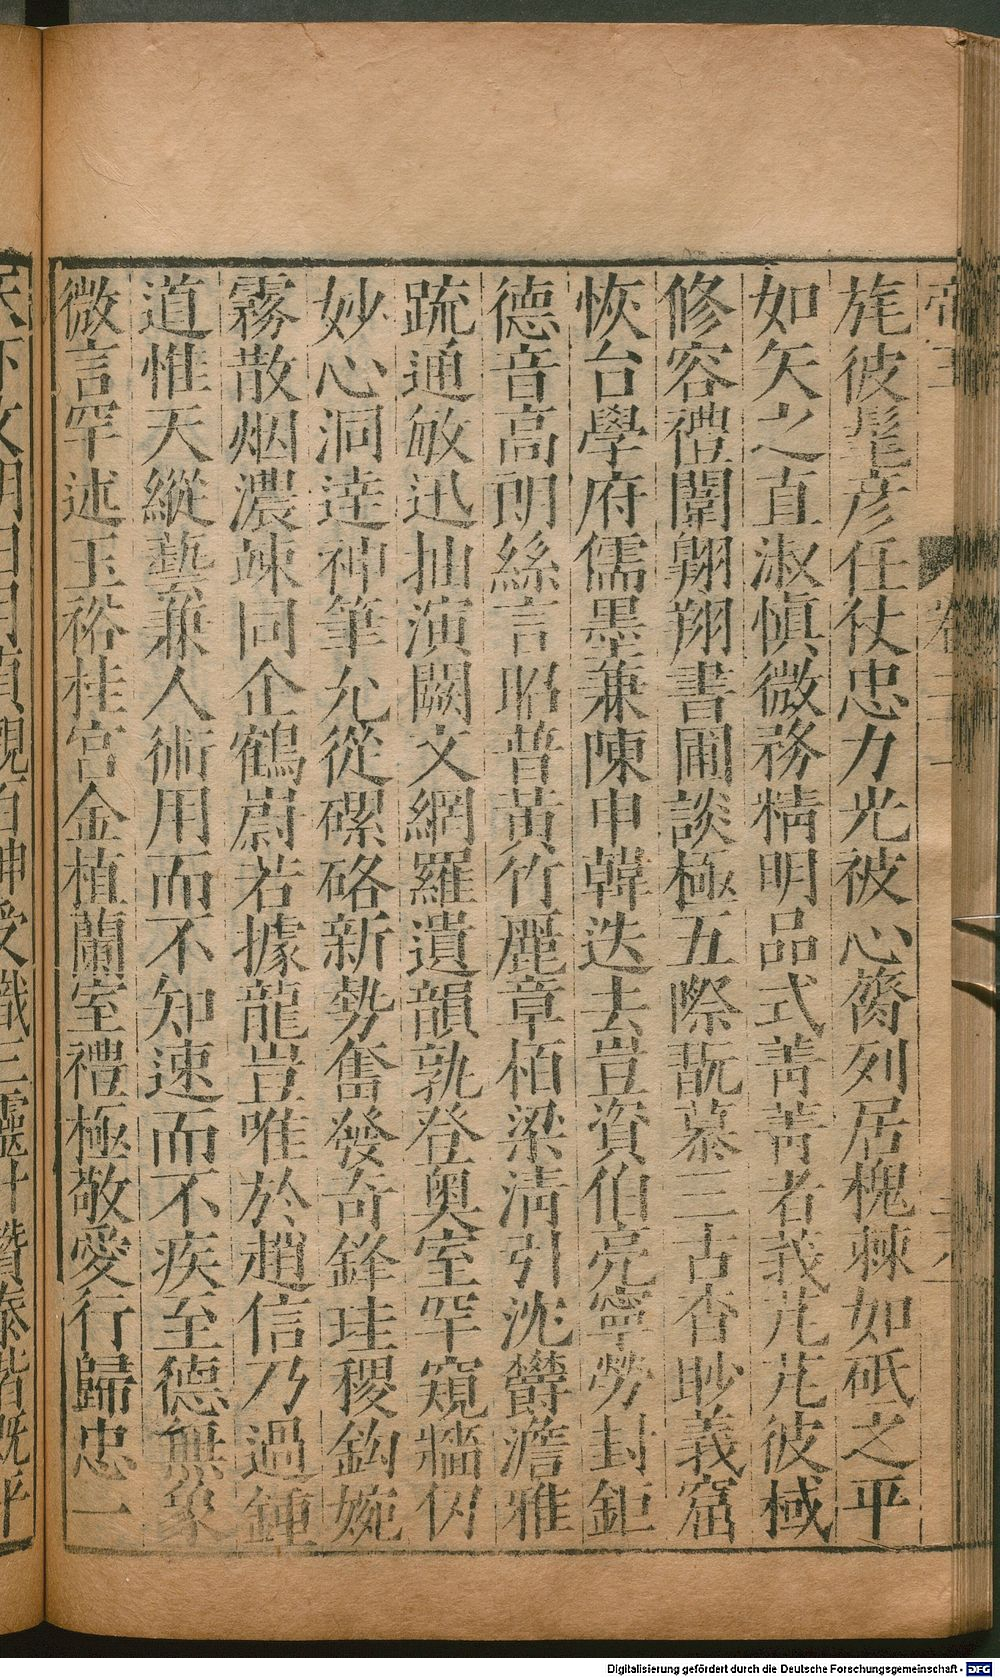 旄彼髦彦任仗忠力光被心膂列居槐棘如砥之平
如矢之直淑慎微務精明品式菁菁者莪芃芃彼棫
修容禮闈翱翔書圃談極五際翫慕三古杳眇義窟
恢台學府儒墨兼陳申韓迭去豈資伯亮寧勞封鉅
德音高朗絲言昭普黃竹麗章栢梁清引沈欝澹雅
疏通敏迅抽演闕文網羅遺韻孰登奧室罕窺牆仞
妙心洞逹神筆允從磥硌新勢奮發奇鋒珪稷鈎婉
霧散烟濃竦同企鶴蔚若據龍豈唯於趙信乃過鍾
道惟天縱藝兼人術用而不知速而不疾至德無象
微言罕述玉裕桂宮金植蘭室禮極敬愛行歸忠一